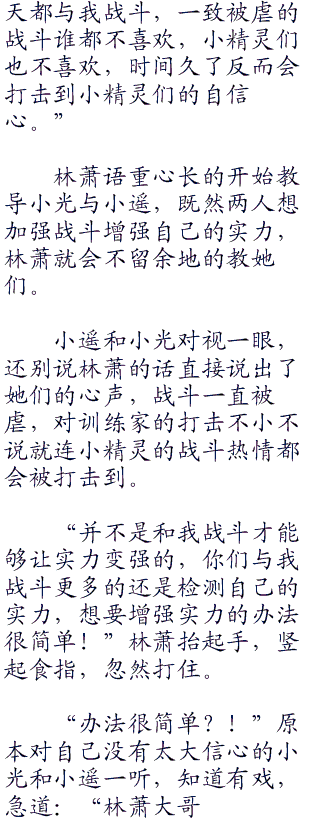 天都与我战斗，一致被虐的
战斗谁都不喜欢，小精灵们
也不喜欢，时间久了反而会
打击到小精灵们的自信
心。”
林萧语重心长的开始教
导小光与小遥，既然两人想
加强战斗增强自己的实力，
林萧就会不留余地的教她
们。
小遥和小光对视一眼，
还别说林萧的话直接说出了
她们的心声，战斗一直被
虐，对训练家的打击不小不
说就连小精灵的战斗热情都
会被打击到。
“并不是和我战斗才能
够让实力变强的，你们与我
战斗更多的还是检测自己的
实力，想要增强实力的办法
很简单！”林萧抬起手，竖
起食指，忽然打住。
“办法很简单？！”原
本对自己没有太大信心的小
光和小遥一听，知道有戏，
急道：“林萧大哥